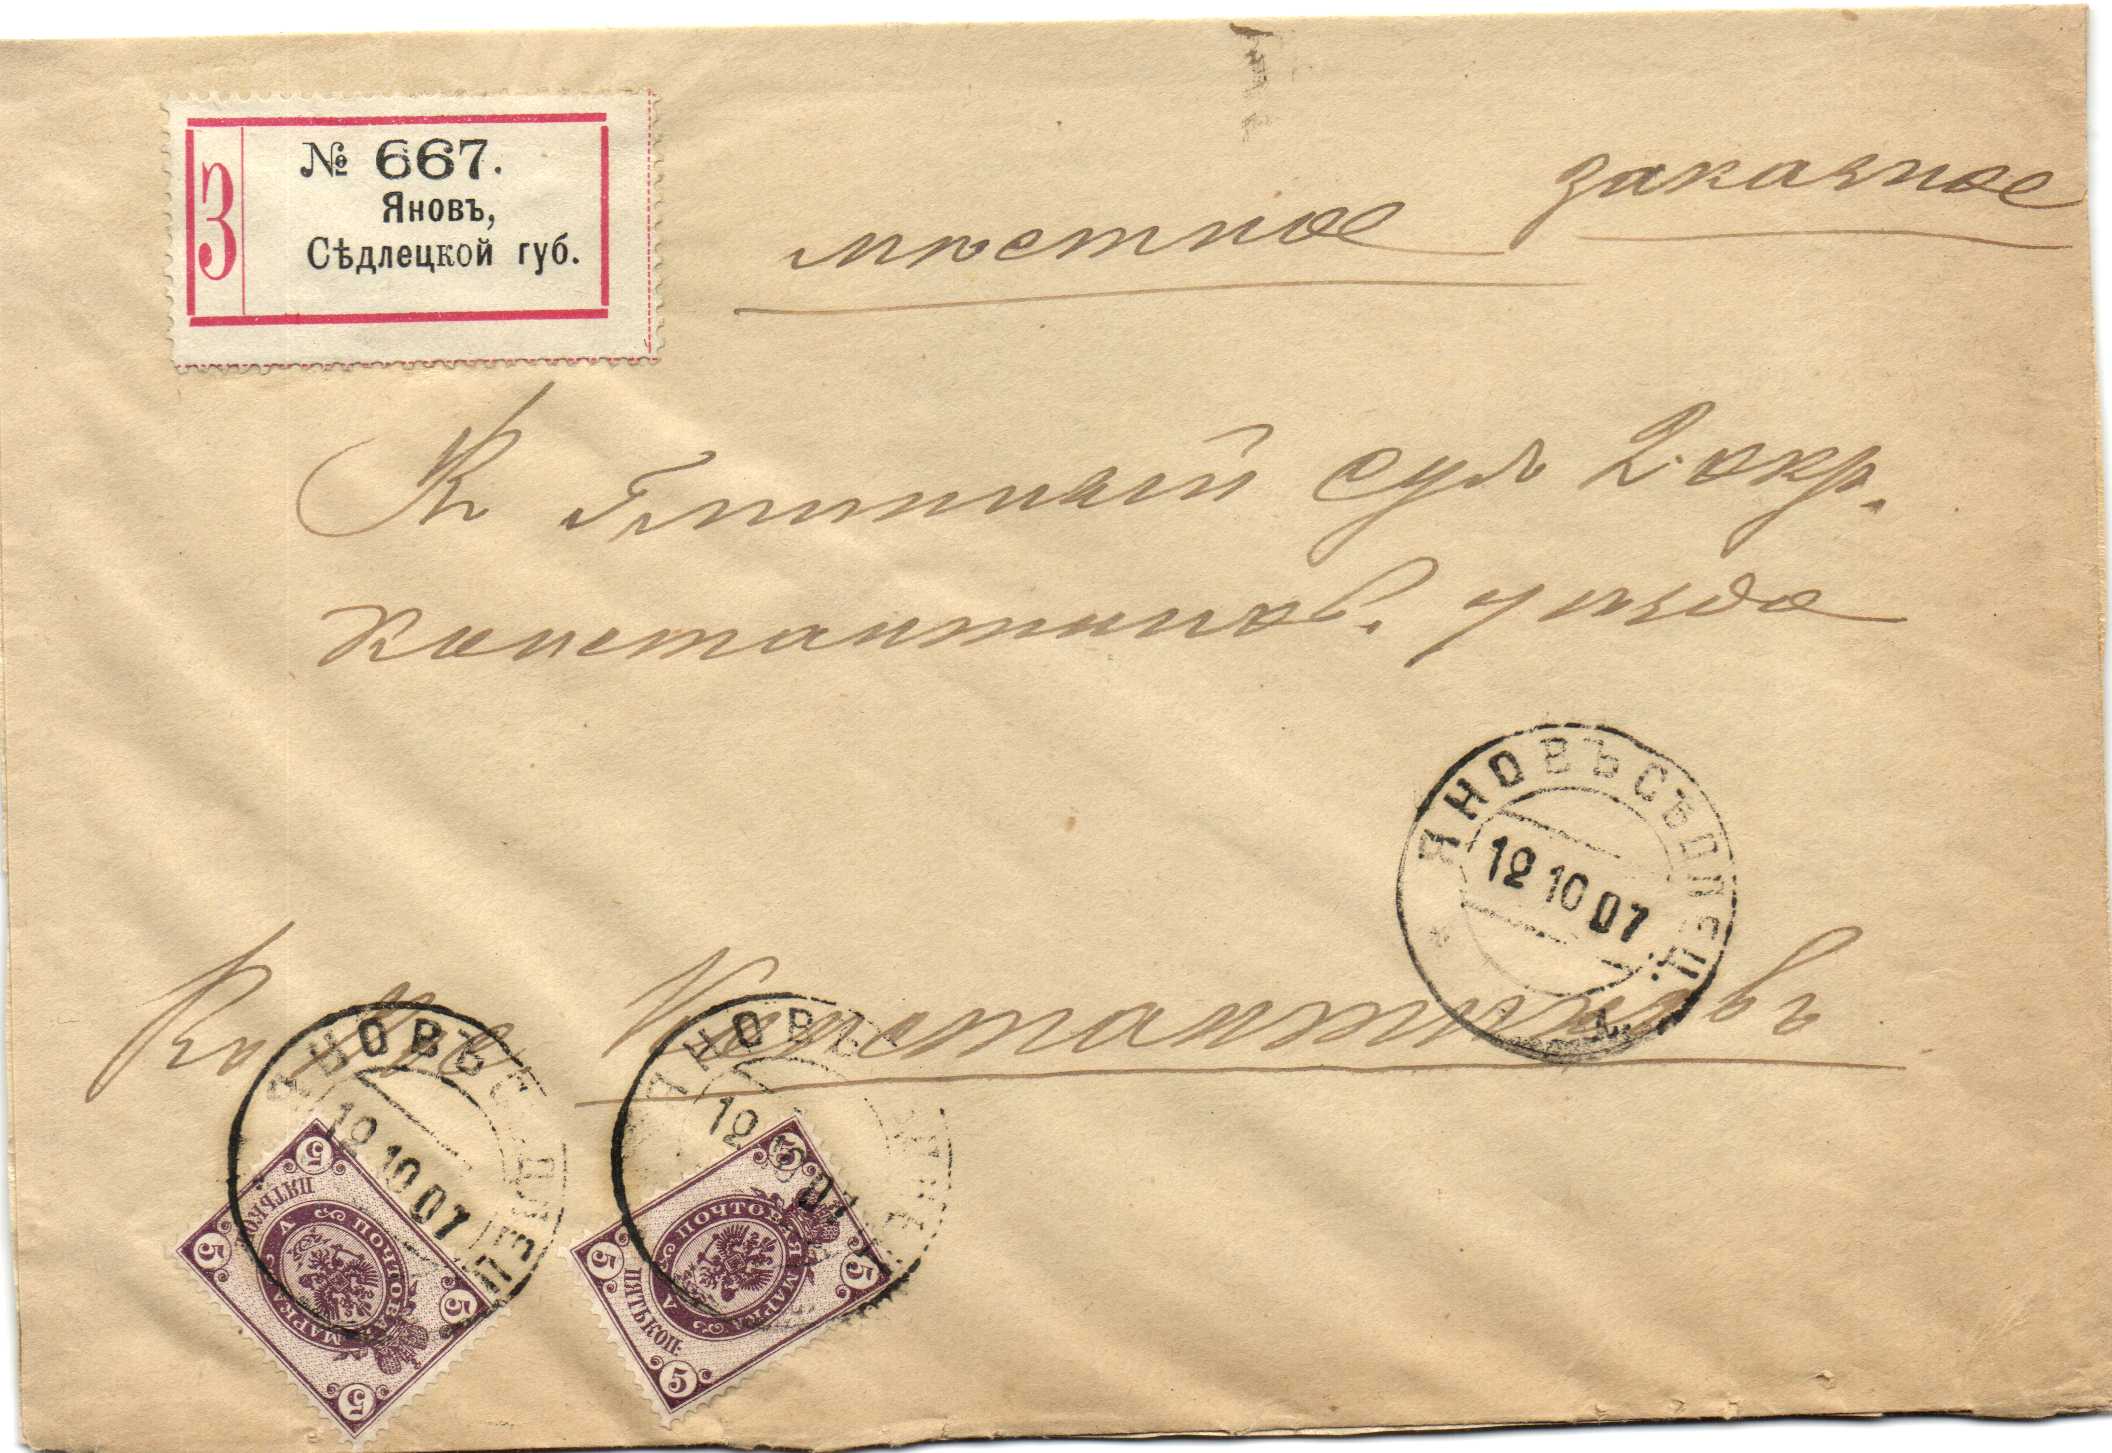 З
№ 667.
Яновъ,
Сѣдлецкой губ.
заказное
мѣстное
Въ Гминный судъ 2 окр.
Константинов. уѣзда
Константиновъ
ЯНОВЪ СѢДЛЕЦ.
12 10 07
ЯНОВЪ СѢДЛЕЦ
12 10 07
ЯНОВЪ
12 10 07
5 5 5 5
ПОЧТОВАЯ МАРКА
ПЯТЬ КОП.
5 5 5 5
ПОЧТОВАЯ МАРКА
ПЯТЬ КОП.